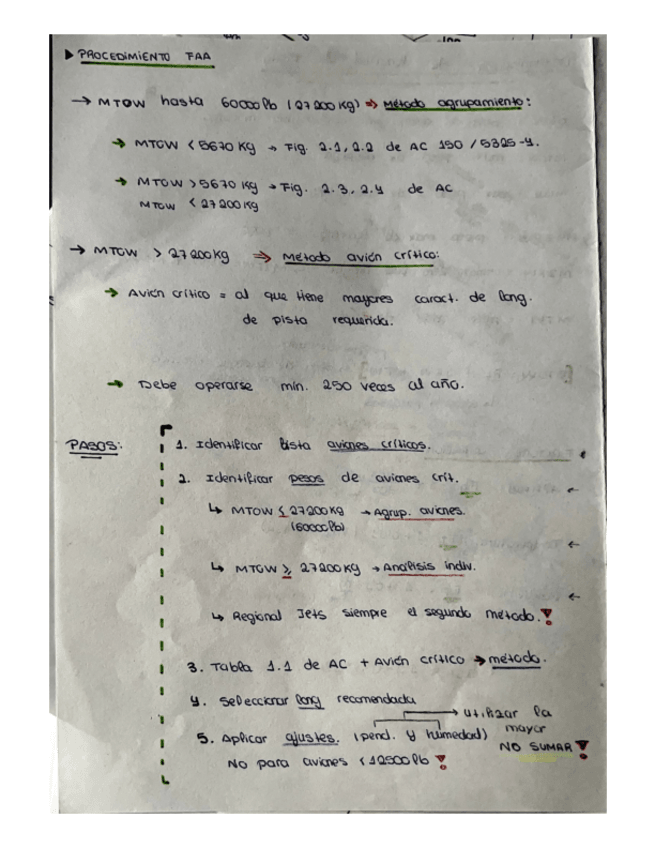 ▶ PROCEDIMIENTO FAA
→ MTOW hasta 60000 lb (27200 kg) ⇒ Método agrupamiento:
→ MTOW < 5670 kg → Fig. 2.1, 2.2 de AC 150 / 5325-4.
→ MTOW > 5670 kg → Fig. 2.3, 2.4 de AC
MTOW < 27200 kg
→ MTOW > 27200 kg ⇒ Método avión crítico:
→ Avión crítico = al que tiene mayores caract. de long.
de pista requerida.
→ Debe operarse mín. 250 veces al año.
PASOS:
1. Identificar lista aviones críticos.
2. Identificar pesos de aviones crít.
↳ MTOW ≤ 27200 kg → Agrup. aviones.
(60000 lb)
↳ MTOW ≥ 27200 kg → Análisis indiv.
↳ Regional Jets siempre el segundo método.!
3. Tabla 1.1 de AC + Avión crítico → método.
4. Seleccionar long recomendada
5. Aplicar ajustes. (pend. y humedad) → utilizar la
mayor
NO SUMAR !
No para aviones < 12500 lb !